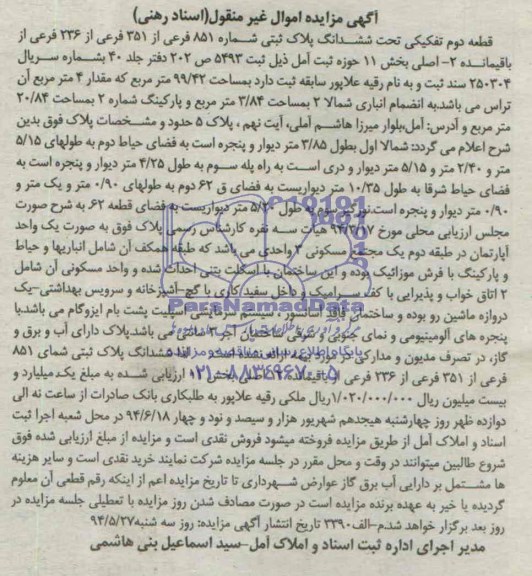 آگهی مزایده اموال غیر منقول(اسناد رهنی)
قطعه دوم تفکیکی تحت ششدانگ پلاک ثبتی شماره ۸۵۱ فرعی از ۳۵۱ فرعی از ۲۳۶ فرعی از
باقیمانده ۲- اصلی بخش ۱۱ حوزه ثبت آمل ذیل ثبت ۵۴۹۳ ص ۲۰۲ دفتر جلد ۴۰ بشماره سریال
۲۵۰۳۰۴ سند ثبت و به نام رقیه علاپور سابقه ثبت دارد بمساحت ۹۹/۴۲ متر مربع که مقدار ۴ متر مربع آن
تراس می باشد.به انضمام انباری شمالا ۲ بمساحت ۳/۸۴ متر مربع و پارکینگ شماره ۲ بمساحت ۲۰/۸۴
متر مربع و آدرس: آمل،بلوار میرزا هاشم آملی، آیت نهم ، پلاک ۵ حدود و مشخصات پلاک فوق بدین
شرح اعلام می گردد: شمالا اول بطول ۳/۸۵ متر دیوار و پنجره است به فضای حیاط دوم به طولهای ۵/۱۵
متر و ۲/۴۰ متر و ۵/۱۵ متر دیوار و دری است به راه پله سوم به طول ۴/۲۵ متر دیوار و پنجره است به
فضای حیاط شرقا به طول ۱۰/۳۵ متر دیواریست به فضای ق ۶۲ دوم به طولهای ۰/۹۰ متر و یک متر و
۰/۹۰ متر دیوار و پنجره است.نورگیر سوم به طول ۵/۲۰ متر دیواریست به فضای قطعه ۶۲. به شرح صورت
مجلس ارزیابی محلی مورخ ۹۴/۳/۱۷ هیات سه نفره کارشناس رسمی پلاک فوق به صورت یک واحد
آپارتمان در طبقه دوم یک مجتمع مسکونی ۳ واحدی می باشد که طبقه همکف آن شامل انباریها و حیاط
و پارکینگ با فرش موزائیک بوده و این ساختمان با اسکلت بتنی احداث شده و واحد مسکونی آن شامل
۲ اتاق خواب و پذیرایی با کف سرامیک و داخل سفید کاری با گچ-آشپزخانه و سرویس بهداشتی-یک
دروازه ماشین رو بوده و ساختمان فاقد آسانسور ، سیستم سرمایشی اسپلیت پشت بام ایزوگام می باشد.با
پنجره های آلومینیومی و نمای جنوبی و شرقی ساختمان آجر ۳ سانتی می باشد.پلاک دارای آب و برق و
گاز، در تصرف مدیون و مدارکی در مورد بیمه ارائه نشده ششدانگ پلاک ثبتی شمای ۸۵۱
فرعی از ۳۵۱ فرعی از ۲۳۶ فرعی از باقیمانده ۲ اصلی بخش ۱۱ ارزیابی شده به مبلغ یک میلیارد و
بیست میلیون ریال ۱/۰۲۰/۰۰۰/۰۰۰ریال ملکی رقیه علاپور به طلبکاری بانک صادرات از ساعت نه الی
دوازده ظهر روز چهارشنبه هیجدهم شهریور هزار و سیصد و نود و چهار ۹۴/۶/۱۸ در محل شعبه اجرا ثبت
اسناد و املاک آمل از طریق مزایده فروخته میشود فروش نقدی است و مزایده از مبلغ ارزیابی شده فوق
شروع طالبین میتوانند در وقت و محل مقرر در جلسه مزایده شرکت نمایند خرید نقدی است و سایر هزینه
ها مشتمل بر دارایی آب برق گاز عوارض شهرداری تا تاریخ مزایده اعم از اینکه رقم قطعی آن معلوم
گردیده یا خیر به عهده برنده مزایده است در صورت مصادف شدن روز مزایده با تعطیلی جلسه مزایده در
روز بعد برگزار خواهد شد.م-الف۳۳۹۰ تاریخ انتشار آگهی مزایده: روز سه شنبه۹۴/۵/۲۷
مدیر اجرای اداره ثبت اسناد و املاک آمل-سید اسماعیل بنی هاشمی
ParsNamadData
پایگاه اطلاع رسانی مناقصه و مزایده
۰۲۱-۸۸۳۴۹۶۷۰-۵